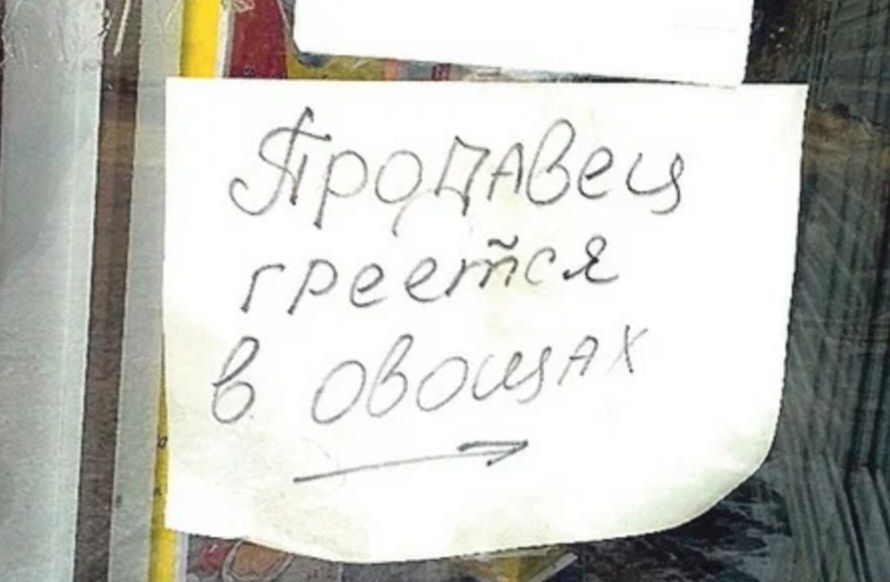 Продавец
греется
в овощах